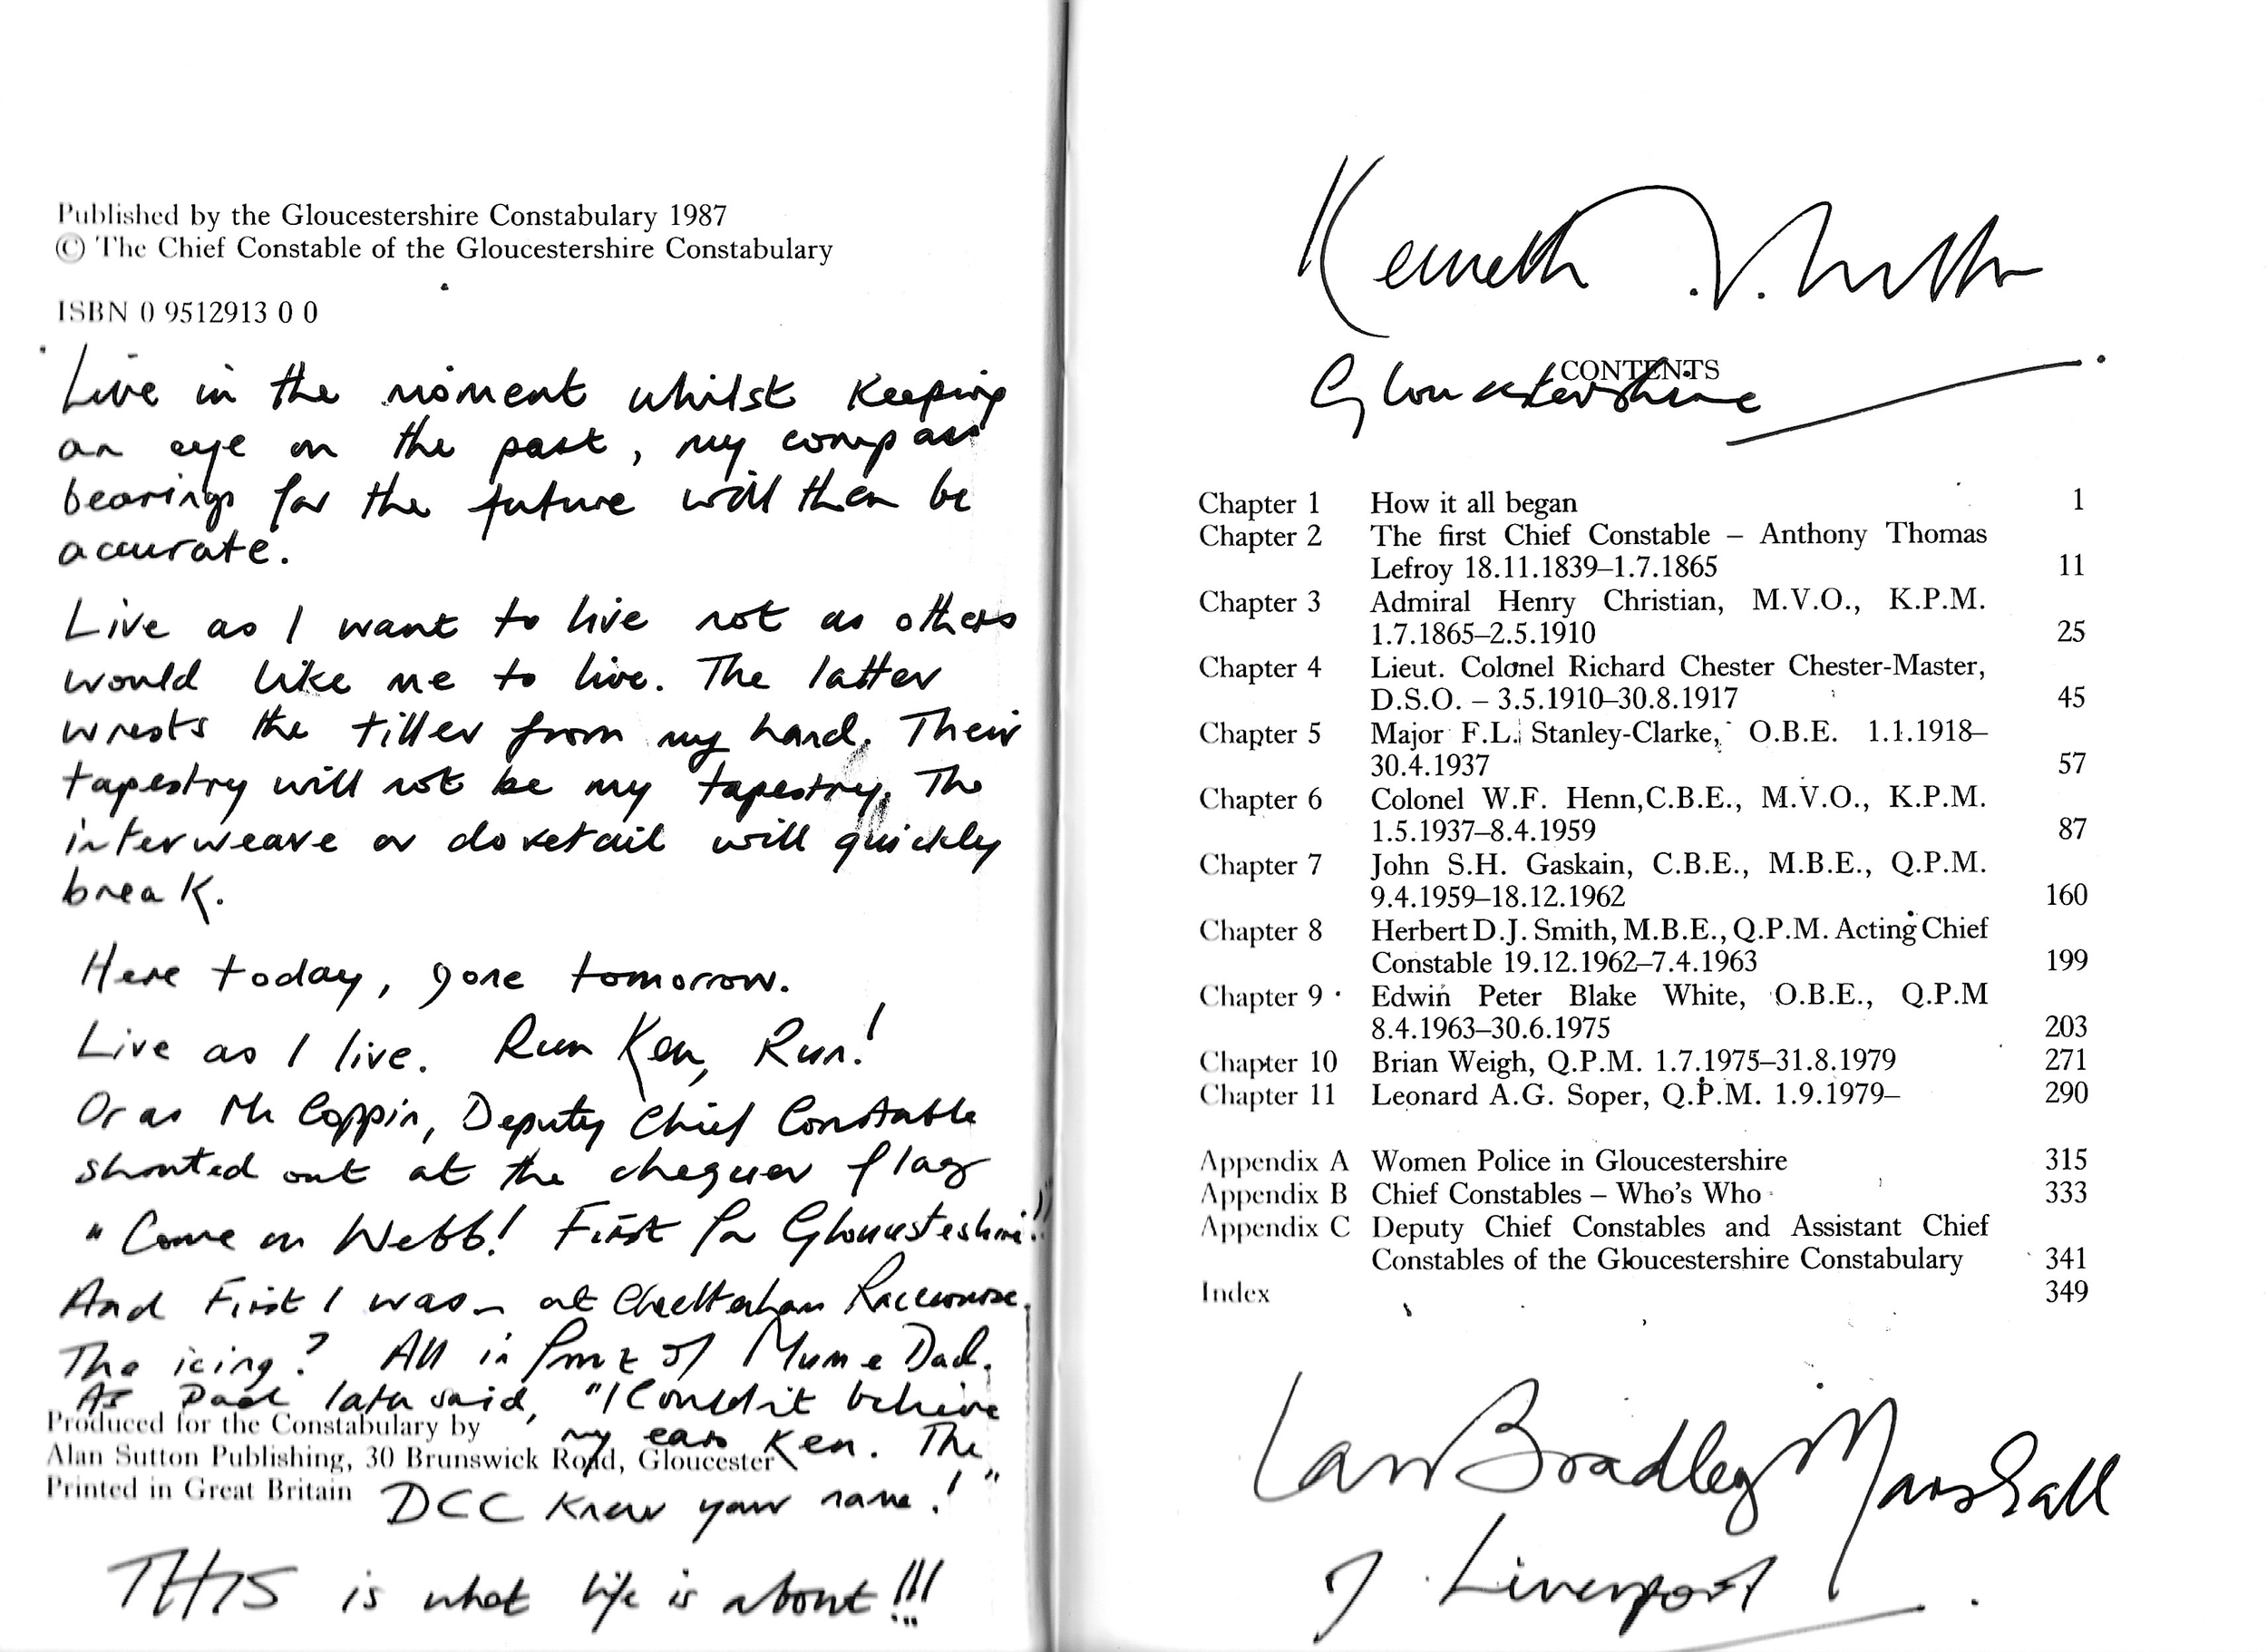 Published by the Gloucestershire Constabulary 1987
© The Chief Constable of the Gloucestershire Constabulary
ISBN 0 9512913 0 0
Live in the moment whilst keeping
an eye on the past, my compass
bearings for the future will then be
accurate.
Live as I want to live not as others
would like me to live. The latter
wrests the tiller from my hand. Their
tapestry will not be my tapestry. The
interweave or dovetail will quickly
break.
Here today, gone tomorrow.
Live as I live. Run Ken, Run!
Or as Mr Coppin, Deputy Chief Constable
shouted out at the chequer flag
"Come on Webb! First for Gloucestershire!"
And First I was – at Cheltenham Racecourse.
The icing? All in front of Mum & Dad.
As Dad later said, "I couldn't believe
my ears Ken. The
DCC knew your name!"
THIS is what life is about!!!
Produced for the Constabulary by
Alan Sutton Publishing, 30 Brunswick Road, Gloucester
Printed in Great Britain
Kenneth J.
Gloucestershire
CONTENTS
Chapter 1 How it all began 1
Chapter 2 The first Chief Constable – Anthony Thomas
Lefroy 18.11.1839–1.7.1865 11
Chapter 3 Admiral Henry Christian, M.V.O., K.P.M.
1.7.1865–2.5.1910 25
Chapter 4 Lieut. Colonel Richard Chester Chester-Master,
D.S.O. – 3.5.1910–30.8.1917 45
Chapter 5 Major F.L. Stanley-Clarke, O.B.E. 1.1.1918–
30.4.1937 57
Chapter 6 Colonel W.F. Henn,C.B.E., M.V.O., K.P.M.
1.5.1937–8.4.1959 87
Chapter 7 John S.H. Gaskain, C.B.E., M.B.E., Q.P.M.
9.4.1959–18.12.1962 160
Chapter 8 Herbert D.J. Smith, M.B.E., Q.P.M. Acting Chief
Constable 19.12.1962–7.4.1963 199
Chapter 9 Edwin Peter Blake White, O.B.E., Q.P.M
8.4.1963–30.6.1975 203
Chapter 10 Brian Weigh, Q.P.M. 1.7.1975–31.8.1979 271
Chapter 11 Leonard A.G. Soper, Q.P.M. 1.9.1979– 290
Appendix A Women Police in Gloucestershire 315
Appendix B Chief Constables – Who's Who 333
Appendix C Deputy Chief Constables and Assistant Chief
Constables of the Gloucestershire Constabulary 341
Index 349
Ian Bradley Marshall
of Liverpool